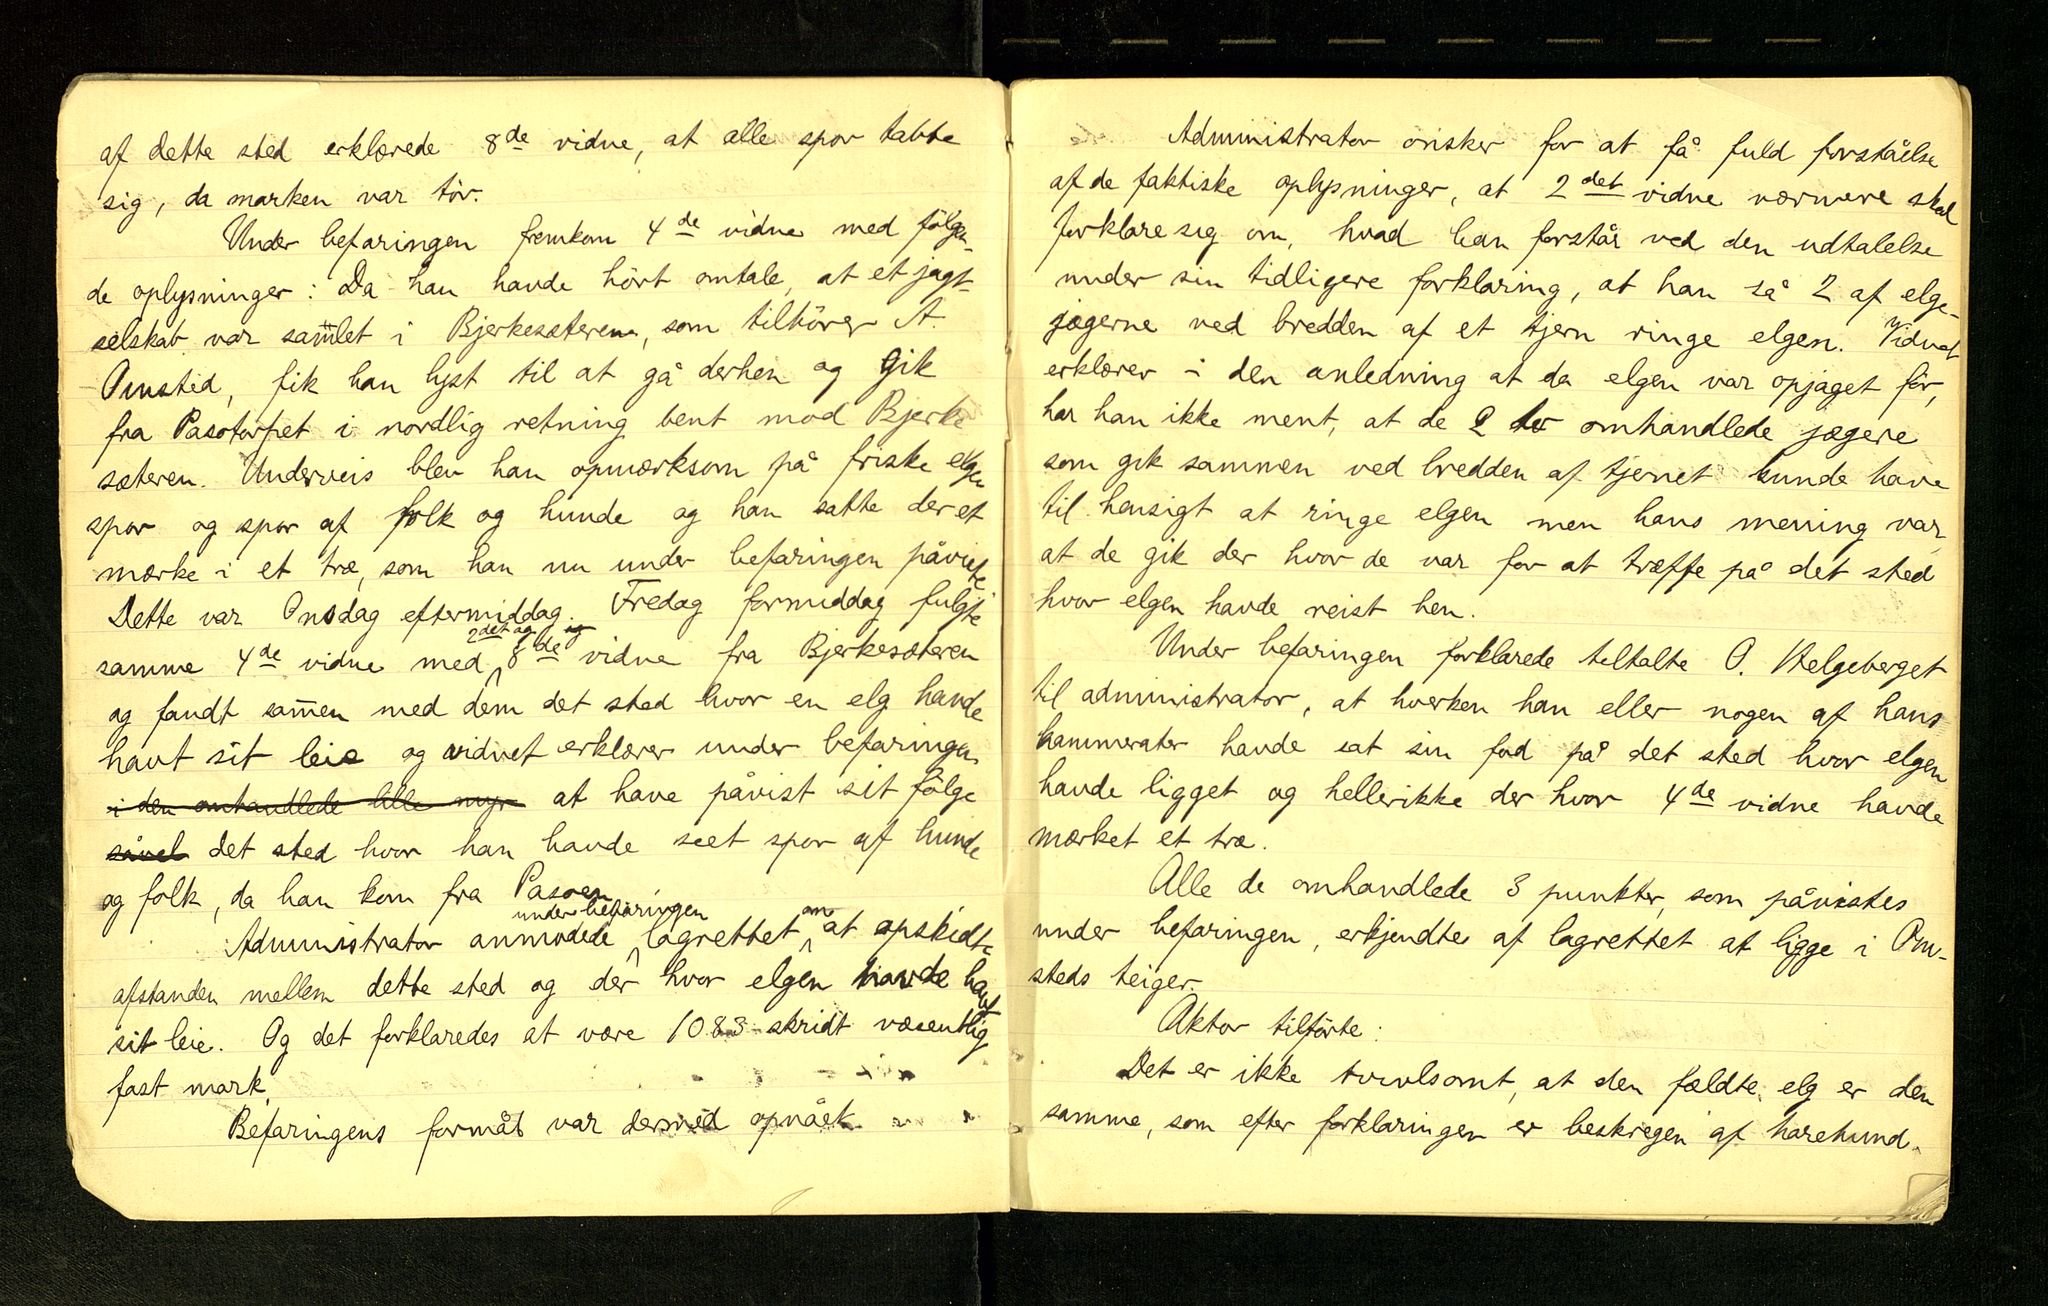 af dette sted erklærede 8de vidne, at alle spor tabte
sig, da marken var tör.
Under befaringen fremkom 4de vidne med fölgen-
de oplysninger: Da han havde hört omtale, at et jagt-
selskab var samlet i Bjerkesæteren, som tilhörer A.
Omsted, fik han lyst til at gå derhen og gik
fra Pasotorpet i nordlig retning bent mod Bjerke
sæteren. Underveis blev han opmærksom på friske elgen
spor og spor af folk og hunde og han satte der et
mærke i et træ, som han nu under befaringen påviste
Dette var Onsdag eftermiddag. Fredag formiddag fulgte
samme 4de vidne med 2det og 8de vidne fra Bjerkesæteren
og fandt sam̄en med dem det sted hvor en elg havde
havt sit leie og vidnet erklærer under befaringen
i den omhandlede lille myr at have påvist sit fölge
såvel det sted hvor han havde seet spor af hunde
og folk, da han kom fra Pasoen
Administrator anmodede under befaringen lagrettet om at opskidte
afstanden mellem dette sted og der hvor elgen havde havt
sit leie. Og det forklaredes at være 1083 skridt væsentlig
fast mark.
Befaringens formål var dermed opnået.
Administrator önsker for at få fuld forståelse
af de faktiske oplysninger, at 2det vidne nærmere skal
forklare sig om, hvad han forstår ved den udtalelse
under sin tidligere forklaring, at han så 2 af elge-
jægerne ved bredden af et tjern ringe elgen. Vidnet
erklærer i den anledning at da elgen var opjaget för,
har han ikke ment, at de 2 omhandlede jægere
som gik sammen ved bredden af tjernet kunde have
til hensigt at ringe elgen men hans mening var
at de gik der hvor de var for at træffe på det sted
hvor elgen havde reist hen.
Under befaringen forklarede tiltalte O. Helgeberget
til administrator, at hverken han eller nogen af hans
kammerater havde sat sin fod på det sted hvor elgen
havde ligget og heller ikke der hvor 4de vidne havde
mærket et træ.
Alle de omhandlede 3 punkter, som påvistes
under befaringen, erkjendtes af lagrettet at ligge i Om-
steds teiger.
Aktor tilförte:
Det er ikke tvivlsomt, at den fældte elg er den
samme, som efter forklaringen er beskregen af harehund.